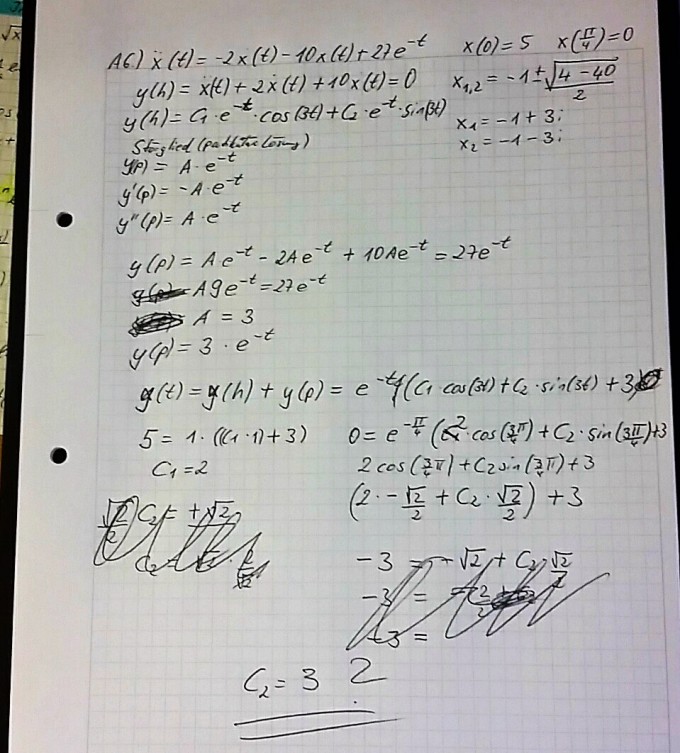 A6.) ẍ(t) = -2ẋ(t) - 10x(t) + 27e^-t x(0) = 5 x(π/4) = 0
y(h) = ẍ(t) + 2ẋ(t) + 10x(t) = 0
x1,2 = -1 ± √(4 - 40) / 2
y(h) = C1 · e^-t · cos(3t) + C2 · e^-t · sin(3t)
x1 = -1 + 3i
x2 = -1 - 3i
Störglied
y(p) = A · e^-t
y'(p) = -A · e^-t
y''(p) = A · e^-t
y(p) = A e^-t - 2Ae^-t + 10Ae^-t = 27e^-t
A9e^-t = 27e^-t
A = 3
y(p) = 3 · e^-t
(t) = y(h) + y(p) = e^-t (C1 · cos(3t) + C2 · sin(3t) + 3)
5 = 1 · ((C1 · 1) + 3) 0 = e^-π/4 (2 · cos(3/4 π) + C2 · sin(3π/4) + 3
C1 = 2 2 cos(3/4 π) + C2 sin(3/4 π) + 3
(2 · -√2/2 + C2 · √2/2) + 3
√2/2 C2 = +√2
-3 = -√2 + C2 · √2/2
-3 =
-3 =
C2 = 3 ?